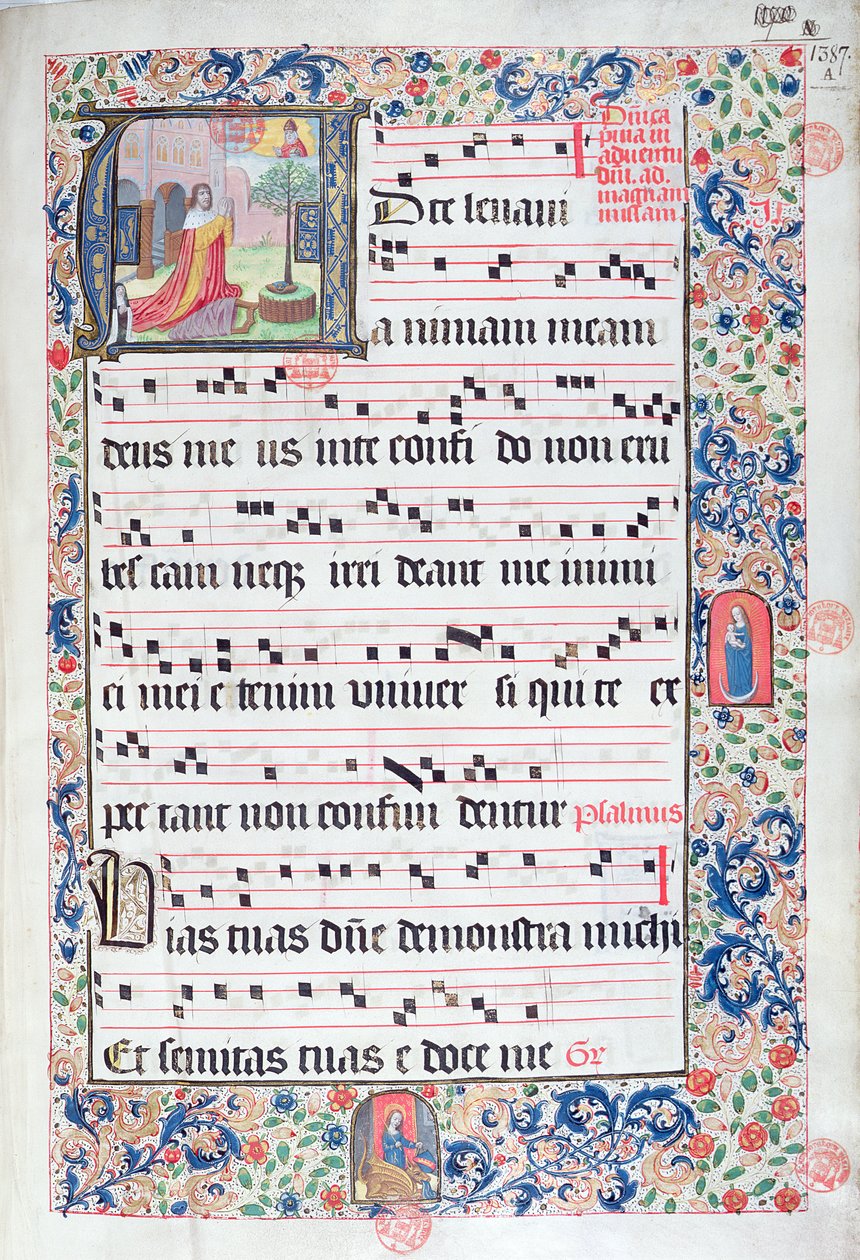 1387.
A
Dñica
p̃ma in
aduentu
dñi. ad.
magnam
missam.
A
D te leuaui
a nimam meam
deus me us in te confi do non eru
bes cam neqꝫ irri deant me inimi
ci mei e tenim vniuer si qui te ex
pec tant non confun dentur psalmus
Vias tuas dñe demonstra michi
Et semitas tuas e doce me Gr